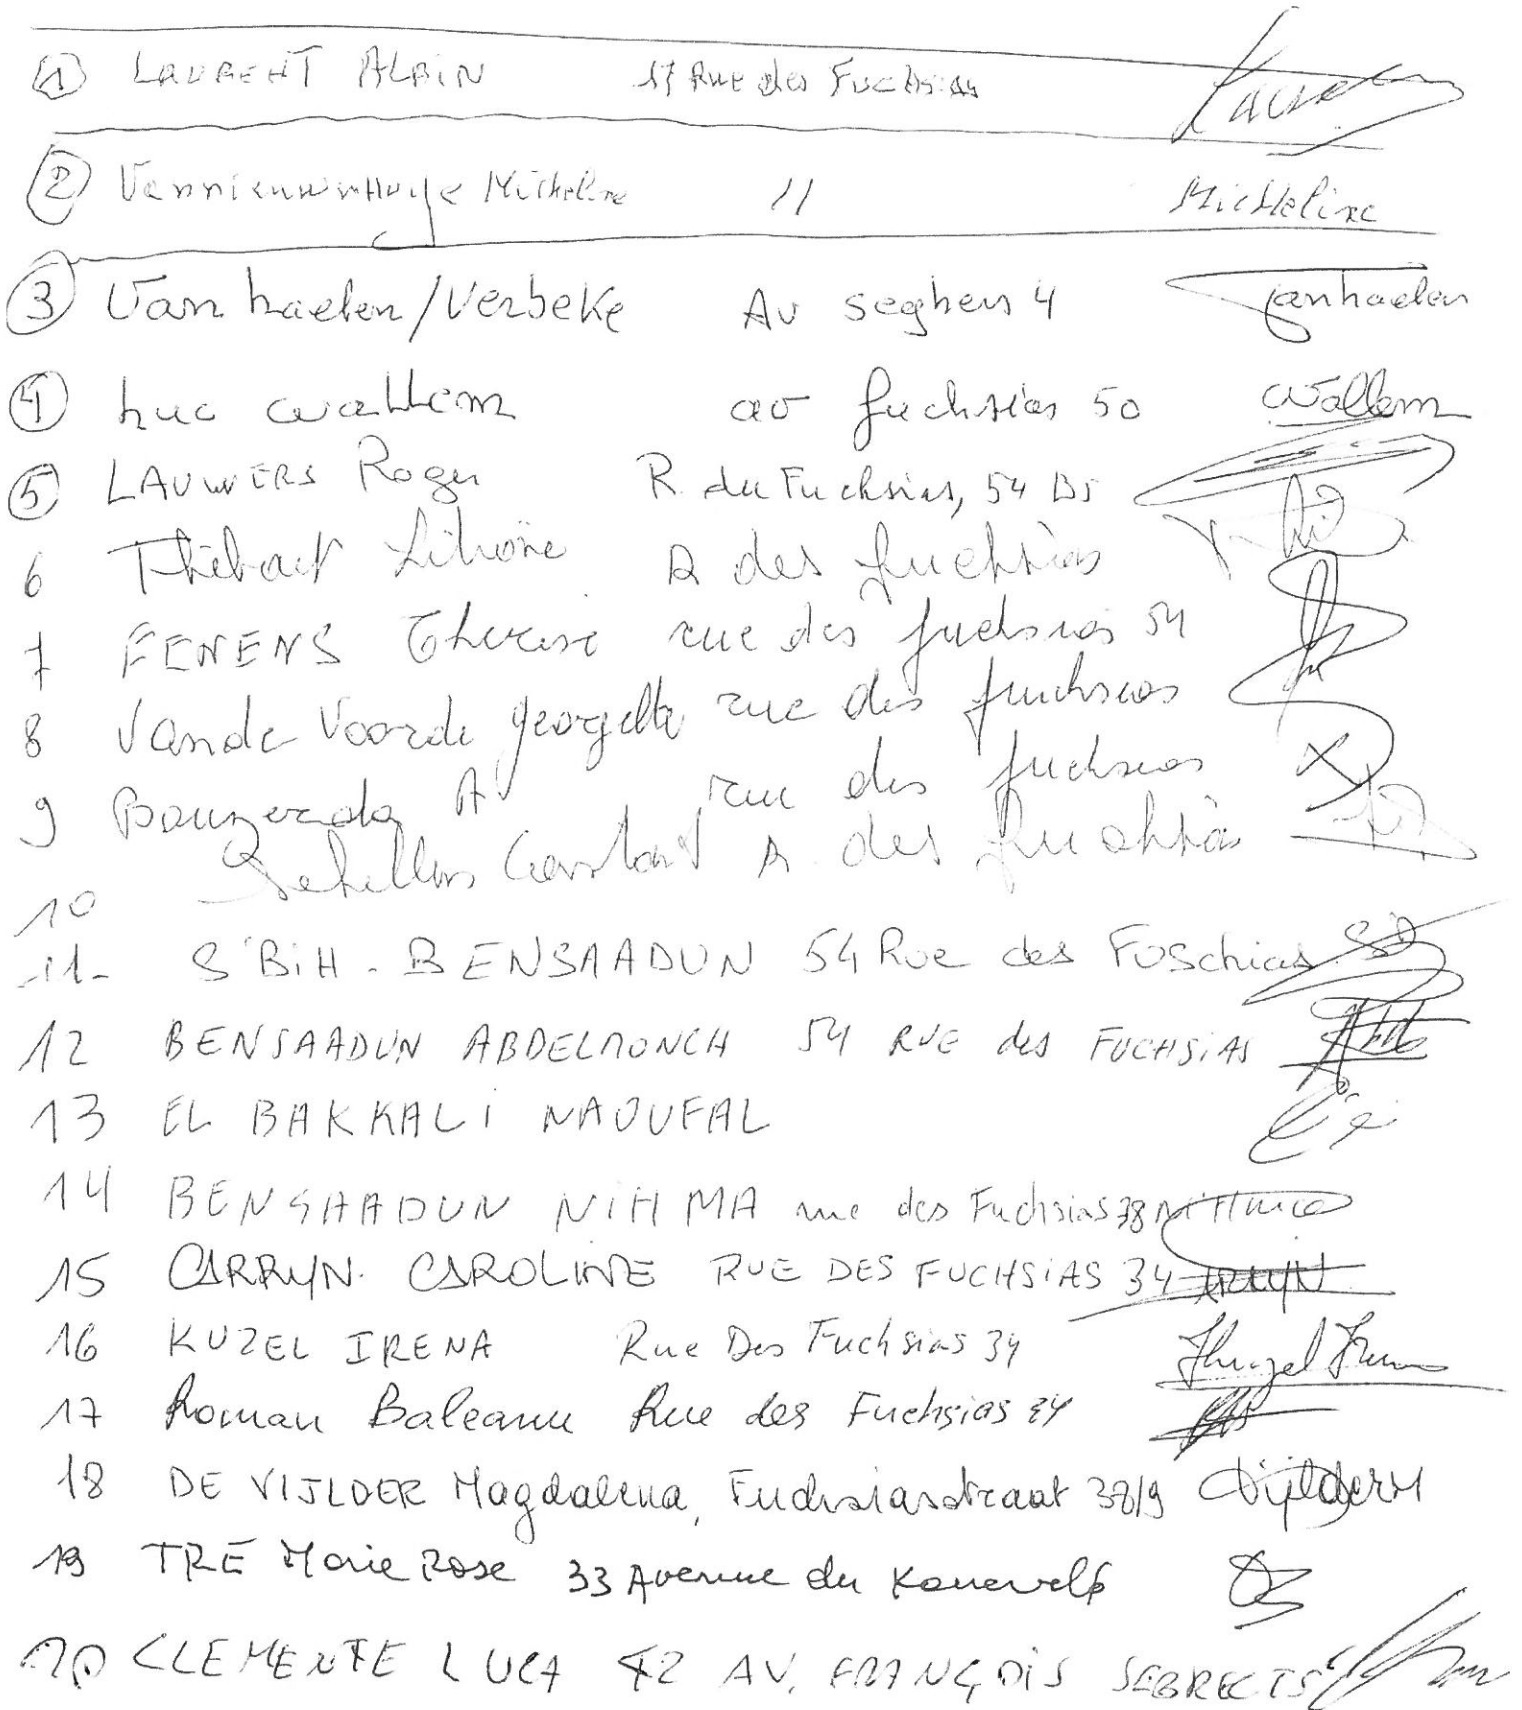 1 LAURENT ALBIN 17 Rue des Fuchsias
2 Micheline 11 Micheline
3 Vanhaelen/Verbeke Av seghers 4 Vanhaelen
4 Luc Wallem av fuchsias 50 Wallem
5 LAUWERS Roger R. des Fuchsias, 54
6 Thiebaut R des fuchsias
7 FENENS Therese rue des fuchsias 54
8 Vande Voorde Georgette rue des fuchsias
9 A rue des fuchsias
10 Constant R. des fuchsias
11- S'BiH - BENSAADUN 54 Rue des FUSchias
12 BENSAADUN ABDELMONCH 54 RUE des FUCHSiAS
13 EL BAKKALi NAOUFAL
14 BENSAADUN NiHMA rue des Fuchsias 38
15 CARRYN CAROLINE RUE DES FUCHSiAS 34
16 KUZEL IRENA Rue Des Fuchsias 34
17 Roman Baleanu Rue des Fuchsias 34
18 DE VIJLDER Magdalena, Fuchsiastraat 38/9
19 TRE Marie Rose 33 Avenue du
20 CLEMENTE LUCA 42 AV. FRANÇOiS SEBRECTS